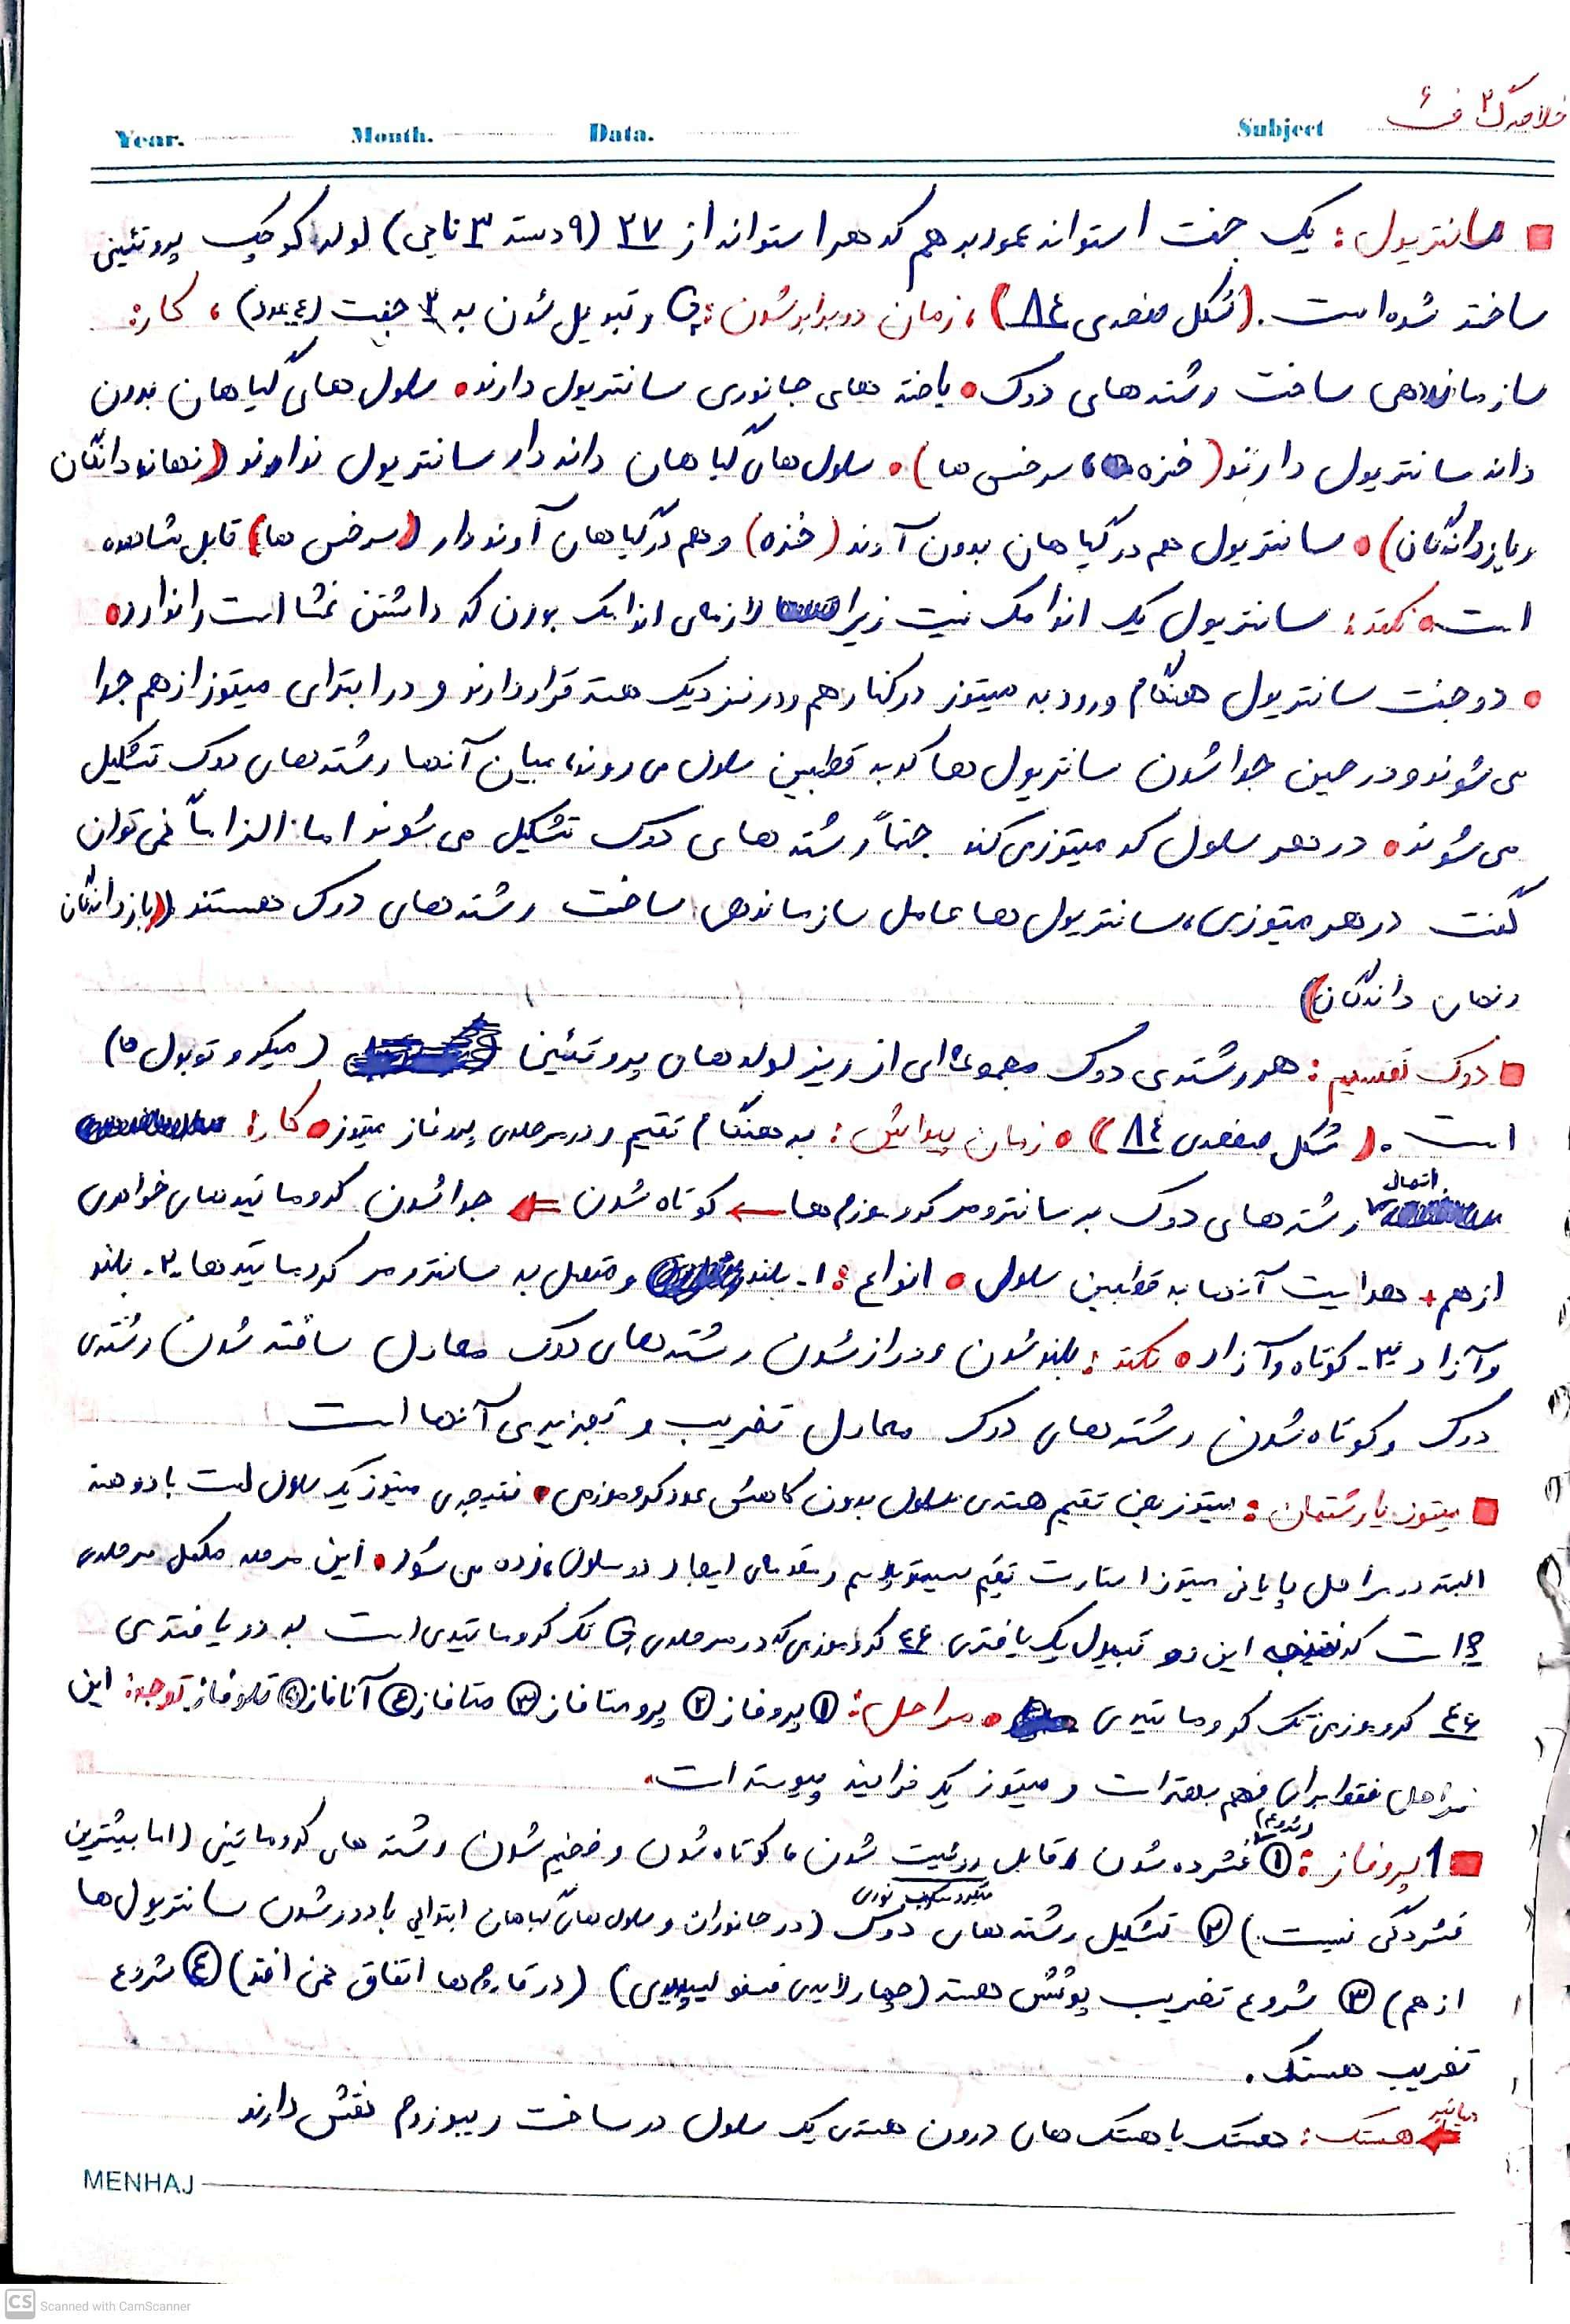 خلاصه ک۲ ف۶
Year. Month. Data. Subject
سانتریول: یک جفت استوانه عمود بر هم که هر استوانه از ۲۷ (۹ دسته ۳ تایی) لوله کوچک پروتئینی
ساخته شده است. (شکل صفحه‌ی ۸۴)، زمان دوبرابر شدن: G₂ و تبدیل شدن به ۲ جفت (۴ عدد)، کار:
سازماندهی ساخت رشته‌های دوک • یاخته های جانوری سانتریول دارند • سلول های گیاهان بدون
دانه سانتریول دارند (خزه ها، سرخس ها) • سلول های گیاهان دانه دار سانتریول ندارند (نهاندانگان
و بازدانگان) • سانتریول هم در گیاهان بدون آوند (خزه) و هم در گیاهان آوند دار (سرخس ها) قابل مشاهده
است • نکته: سانتریول یک اندامک نیست زیرا لازمه‌ی اندامک بودن که داشتن غشا است را ندارد •
• دو جفت سانتریول هنگام ورود به میتوز در کنار هم و در نزدیک هسته قرار دارند و در ابتدای میتوز از هم جدا
می شوند و در حین جدا شدن سانتریول ها که به قطبین سلول می روند، میان آنها رشته های دوک تشکیل
می شوند • در هر سلول که میتوز می کند حتماً رشته های دوک تشکیل می شوند اما الزاماً نمی توان
گفت در هر میتوزی، سانتریول ها عامل سازماندهی ساخت رشته های دوک هستند (بازدانگان
و نهان دانگان)
دوک تقسیم: هر رشته‌ی دوک مجموعه ای از ریز لوله های پروتئینی (میکروتوبول ها)
است. (شکل صفحه‌ی ۸۴) • زمان پیدایش: به هنگام تقسیم و در مرحله‌ی پروفاز میتوز • کار:
اتصال رشته های دوک به سانترومر کروموزوم ها ← کوتاه شدن ⇐ جدا شدن کروماتیدهای خواهری
از هم + هدایت آنها به قطبین سلول • انواع: ۱- بلند و متصل به سانترومر کروماتیدها ۲- بلند
و آزاد ۳- کوتاه و آزاد • نکته: بلند شدن و دراز شدن رشته های دوک معادل ساخته شدن رشته‌ی
دوک و کوتاه شدن رشته های دوک معادل تخریب و تجزیه‌ی آنها است
میتوز یا رشتمان: میتوز یعنی تقسیم هسته‌ی سلول بدون کاهش عدد کروموزومی • نتیجه‌ی میتوز یک سلول است با دو هسته
البته در مراحل پایانی میتوز استارت تقسیم سیتوپلاسم و مقدمه‌ی ایجاد دو سلول، زده می شود • این مرحله مکمل مرحله‌ی
است که نتیجه این دو تبدیل یک یاخته‌ی ۴۶ کروموزومی که در مرحله‌ی G₁ تک کروماتیدی است به دو یاخته‌ی
۴۶ کروموزومی تک کروماتیدی • مراحل: ① پروفاز ② پرومتافاز ③ متافاز ④ آنافاز ⑤ تلوفاز • توجه: این
مراحل فقط برای فهم بهتر است و میتوز یک فرایند پیوسته است.
۱ پروفاز: ① (شروع) فشرده شدن، قابل رویت شدن با میکروسکوپ نوری، کوتاه شدن و ضخیم شدن رشته های کروماتینی (اما بیشترین
فشردگی نیست.) ② تشکیل رشته های دوک (در جانوران و سلول های گیاهان ابتدایی با دور شدن سانتریول ها
از هم) ③ شروع تخریب پوشش هسته (چهار لایه‌ی فسفولیپیدی) (در قارچ ها اتفاق نمی افتد) ④ شروع
تخریب هستک.
هستک: هستک یا هستک های درون هسته‌ی یک سلول در ساخت ریبوزوم نقش دارند
MENHAJ
CS Scanned with CamScanner